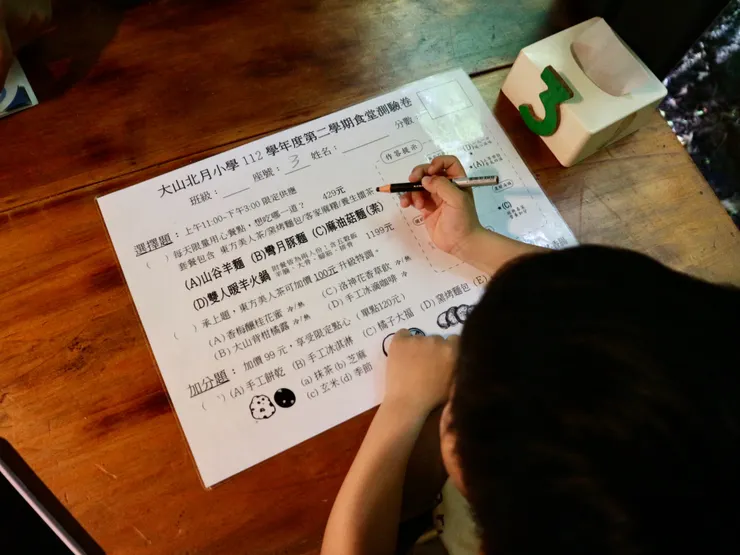 大山北月小學 112 學年度第二學期食堂測驗卷
班級: 座號: 3 姓名: 分數
選擇題: 上午11:00~下午3:00 限定供應
( ) 每天限量用心餐點,想吃哪一道? 429元
套餐包含 東方美人茶/窯烤麵包/客家麻糬/養生擂茶
(A)山谷羊麵 (B)彎月豚麵 (C)麻油菇麵(素)
(D)雙人暖羊火鍋 1199元
( ) 承上題,東方美人茶可加價100元 升級特調。
(A)香梅釀桂花蜜 冷/熱 (C)洛神花香草飲 冷/熱
(B)大山背柑橘露 冷/熱 (D)手工冰滴咖啡 冷
加分題: 加價 99 元,享受限定點心 (單點120元)
( ) (A)手工餅乾 (B)手工冰淇淋 (C)橘子大福 (D)窯烤麵包 (E)
(a)抹茶(b)芝麻
(c)玄米(d)季節
作答提示
(A)
(C)
3